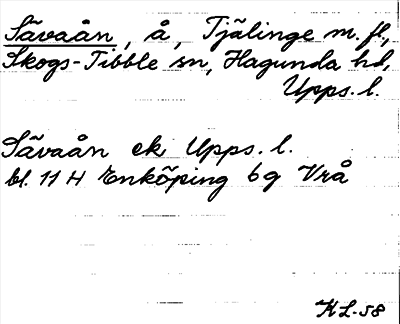 Sävaån, å, Tjälinge m. fl.,
Skogs-Tibble sn, Hagunda hd,
Upps. l.
Sävaån ek Upps. l.
bl. 11 H Enköping 6g Vrå
KL-58